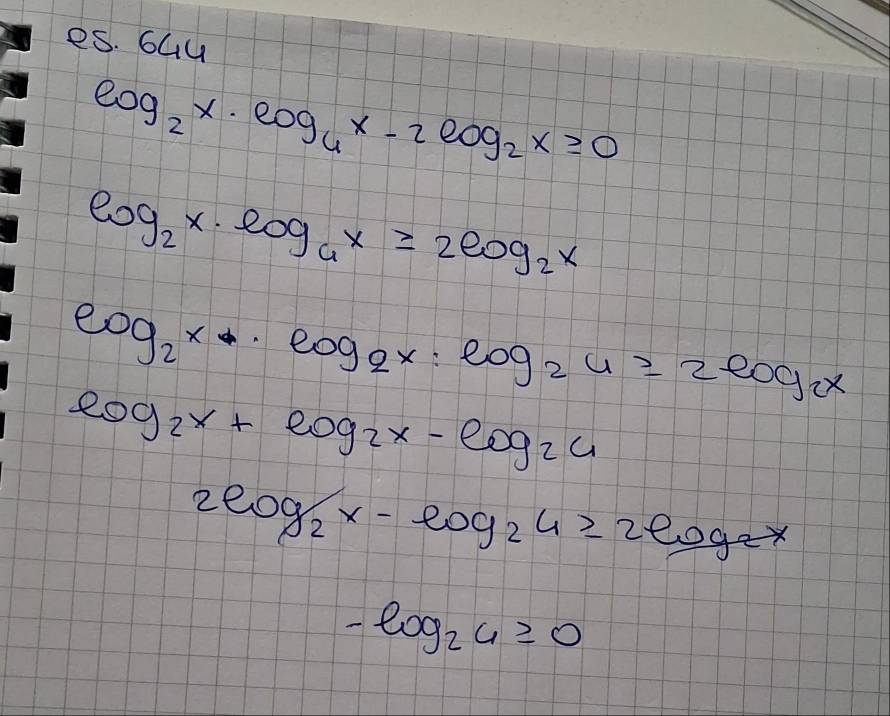 es. 644
log₂x · log₄x - 2log₂x ≥ 0
log₂x · log₄x ≥ 2log₂x
log₂x · log₂x : log₂4 ≥ 2log₂x
log₂x + log₂x - log₂4
2log₂x - log₂4 ≥ 2log₂x
-log₂4 ≥ 0